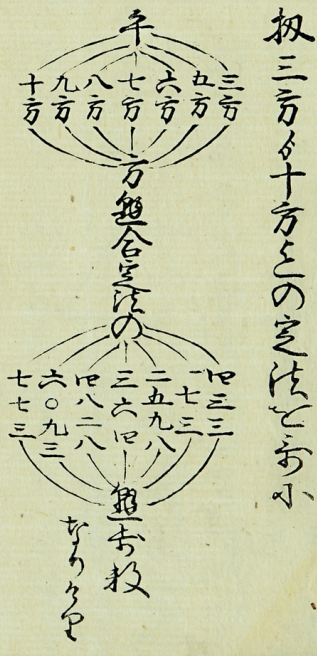 扨三方ゟ十方迄の定法を哥小
平
三方
五方
六方
七方
八方
九方
十方
方懸合定法の
四三三
一七三
二五九八
三六四
四八二八
六〇九三
七七三
懸歩数
なりけり